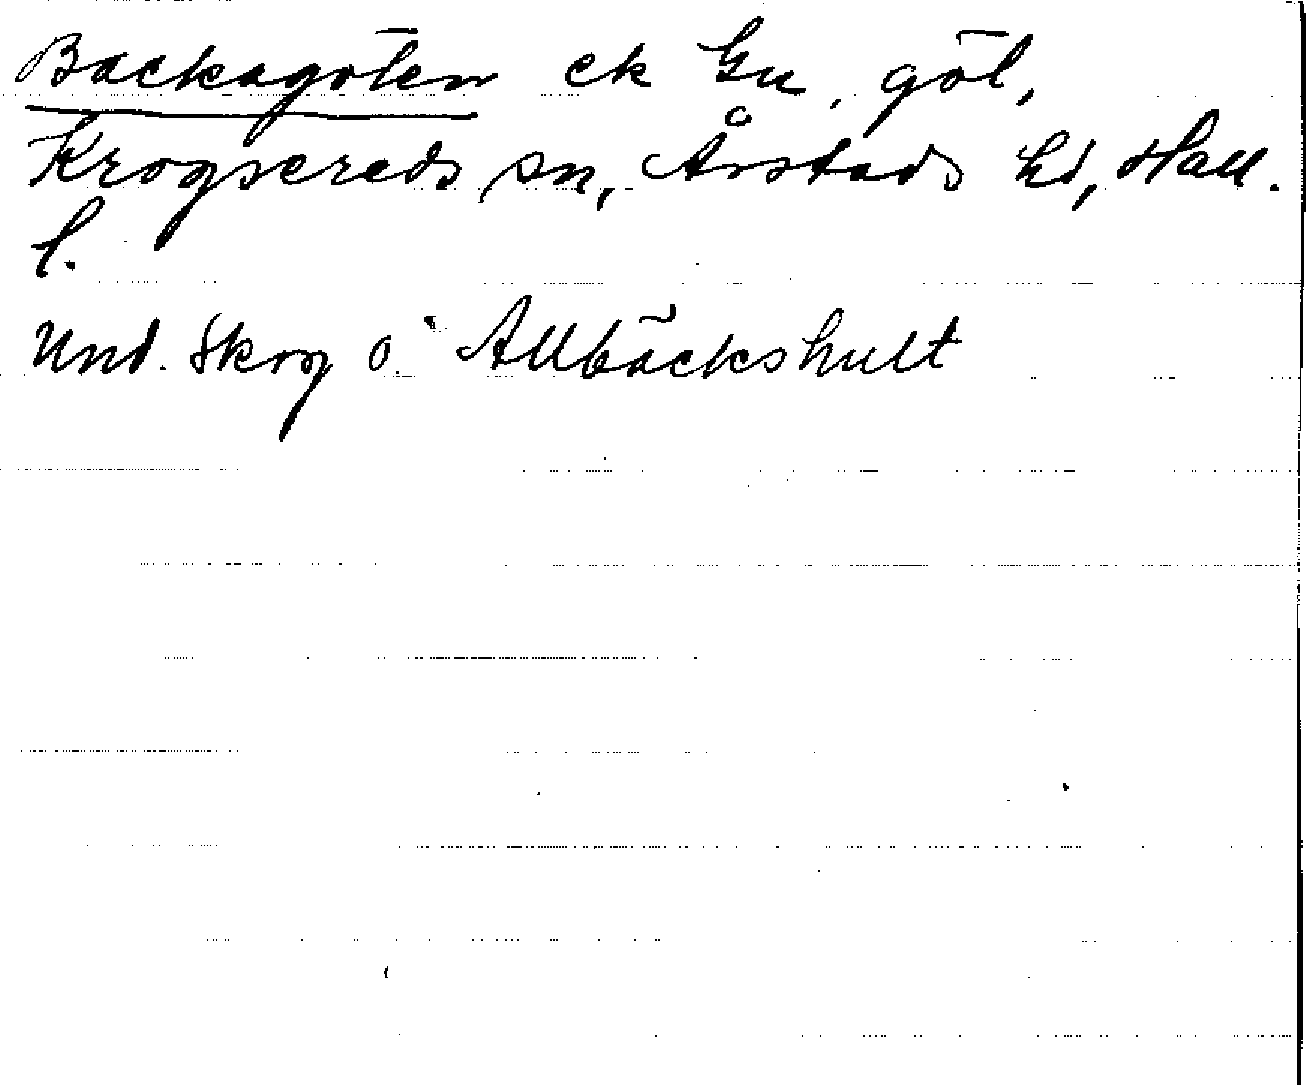 Backagölen ek Gu, göl,
Krogsereds sn, Årstads hd, Hall.
l.
Und. Skog o. Allbäckshult